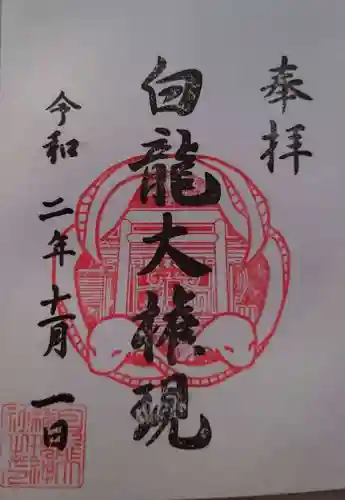 奉拝
白龍大権現
令和二年十一月一日